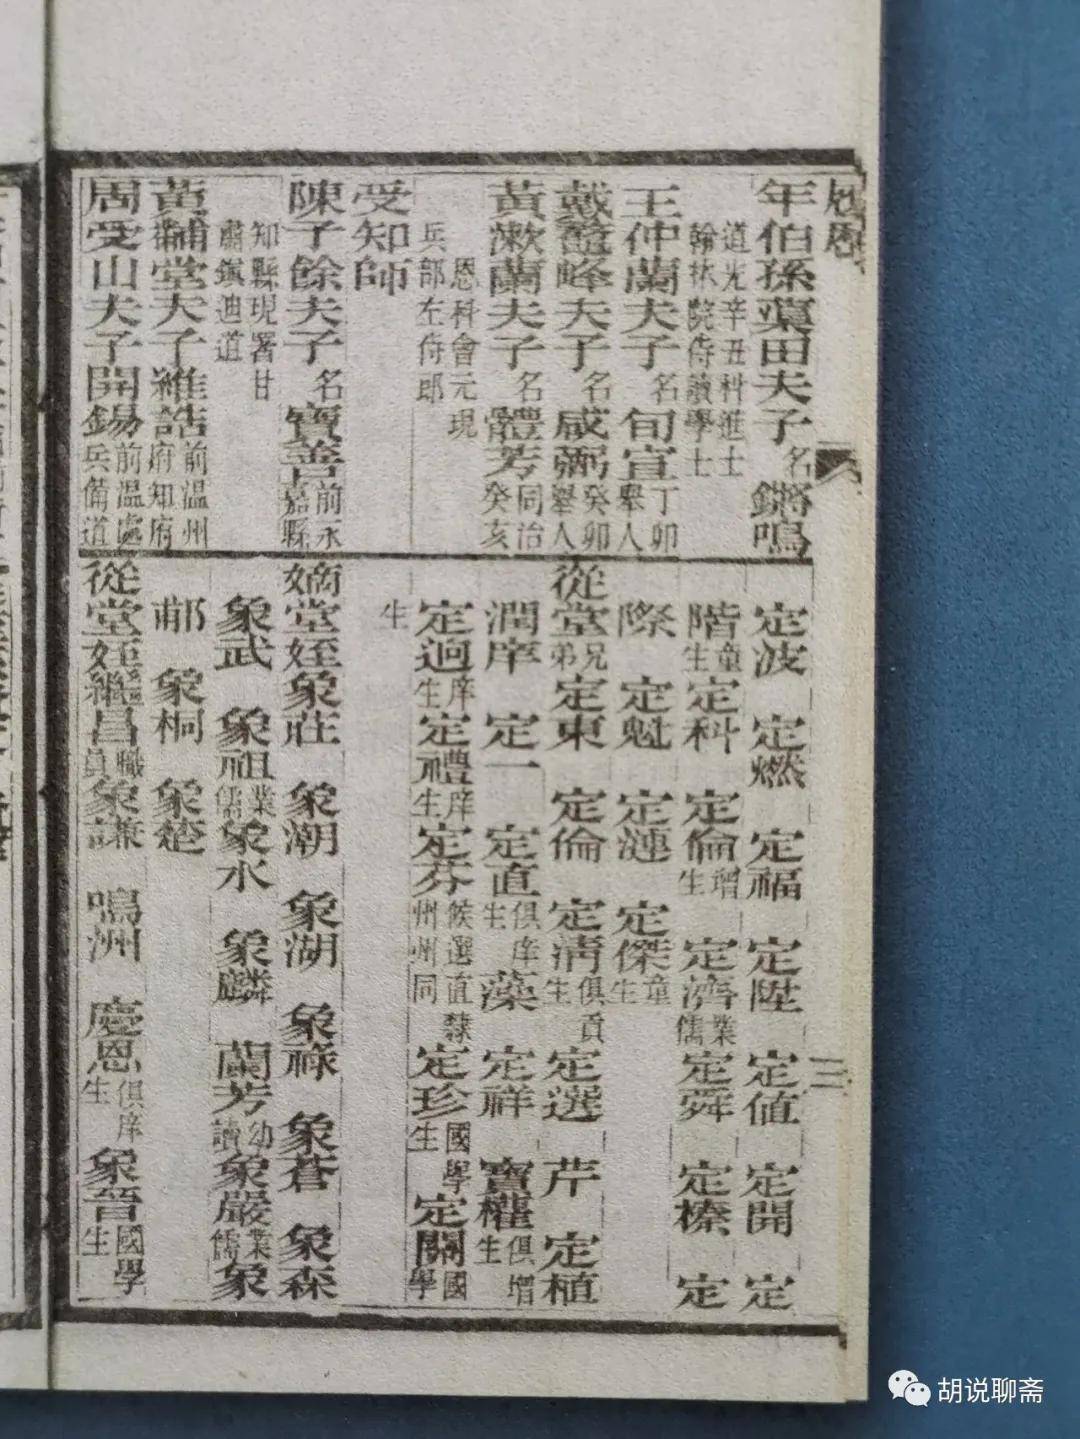 年伯孫蕖田夫子名鏘鳴
道光辛丑科進士
翰林院侍讀學士
王仲蘭夫子名旬宣丁卯舉人
戴鼇峰夫子名咸弼癸卯舉人
黃漱蘭夫子名體芳同治癸亥
恩科會元現
兵部左侍郎
受知師
陳子餘夫子名寶善前永嘉縣
知縣現署甘
肅鎮迪道
黃輔堂夫子維誥前溫州府知府
周受山夫子開錫前溫處兵備道
定波 定燃 定福 定陞 定值 定開 定
階童生定科 定倫增生 定濟業儒定舜 定榛 定
際 定魁 定漣 定傑童生
從堂兄弟定東 定倫 定清俱貢生 定選 芹 定植
潤庠 定一 定直俱庠生 藻 定祥 寶權俱增生
定迥庠生定禮庠生定芬候選直隸州州同 定珍國學生 定關國學
生
嫡堂姪象莊 象潮 象湖 象祿 象蒼 象森
象武 象祖業儒象水 象麟 蘭芳幼讀象嚴業儒象
郙 象桐 象楚
從堂姪繼昌職員象謙 鳴洲 慶恩俱庠生 象晉國學生
三
胡说聊斋